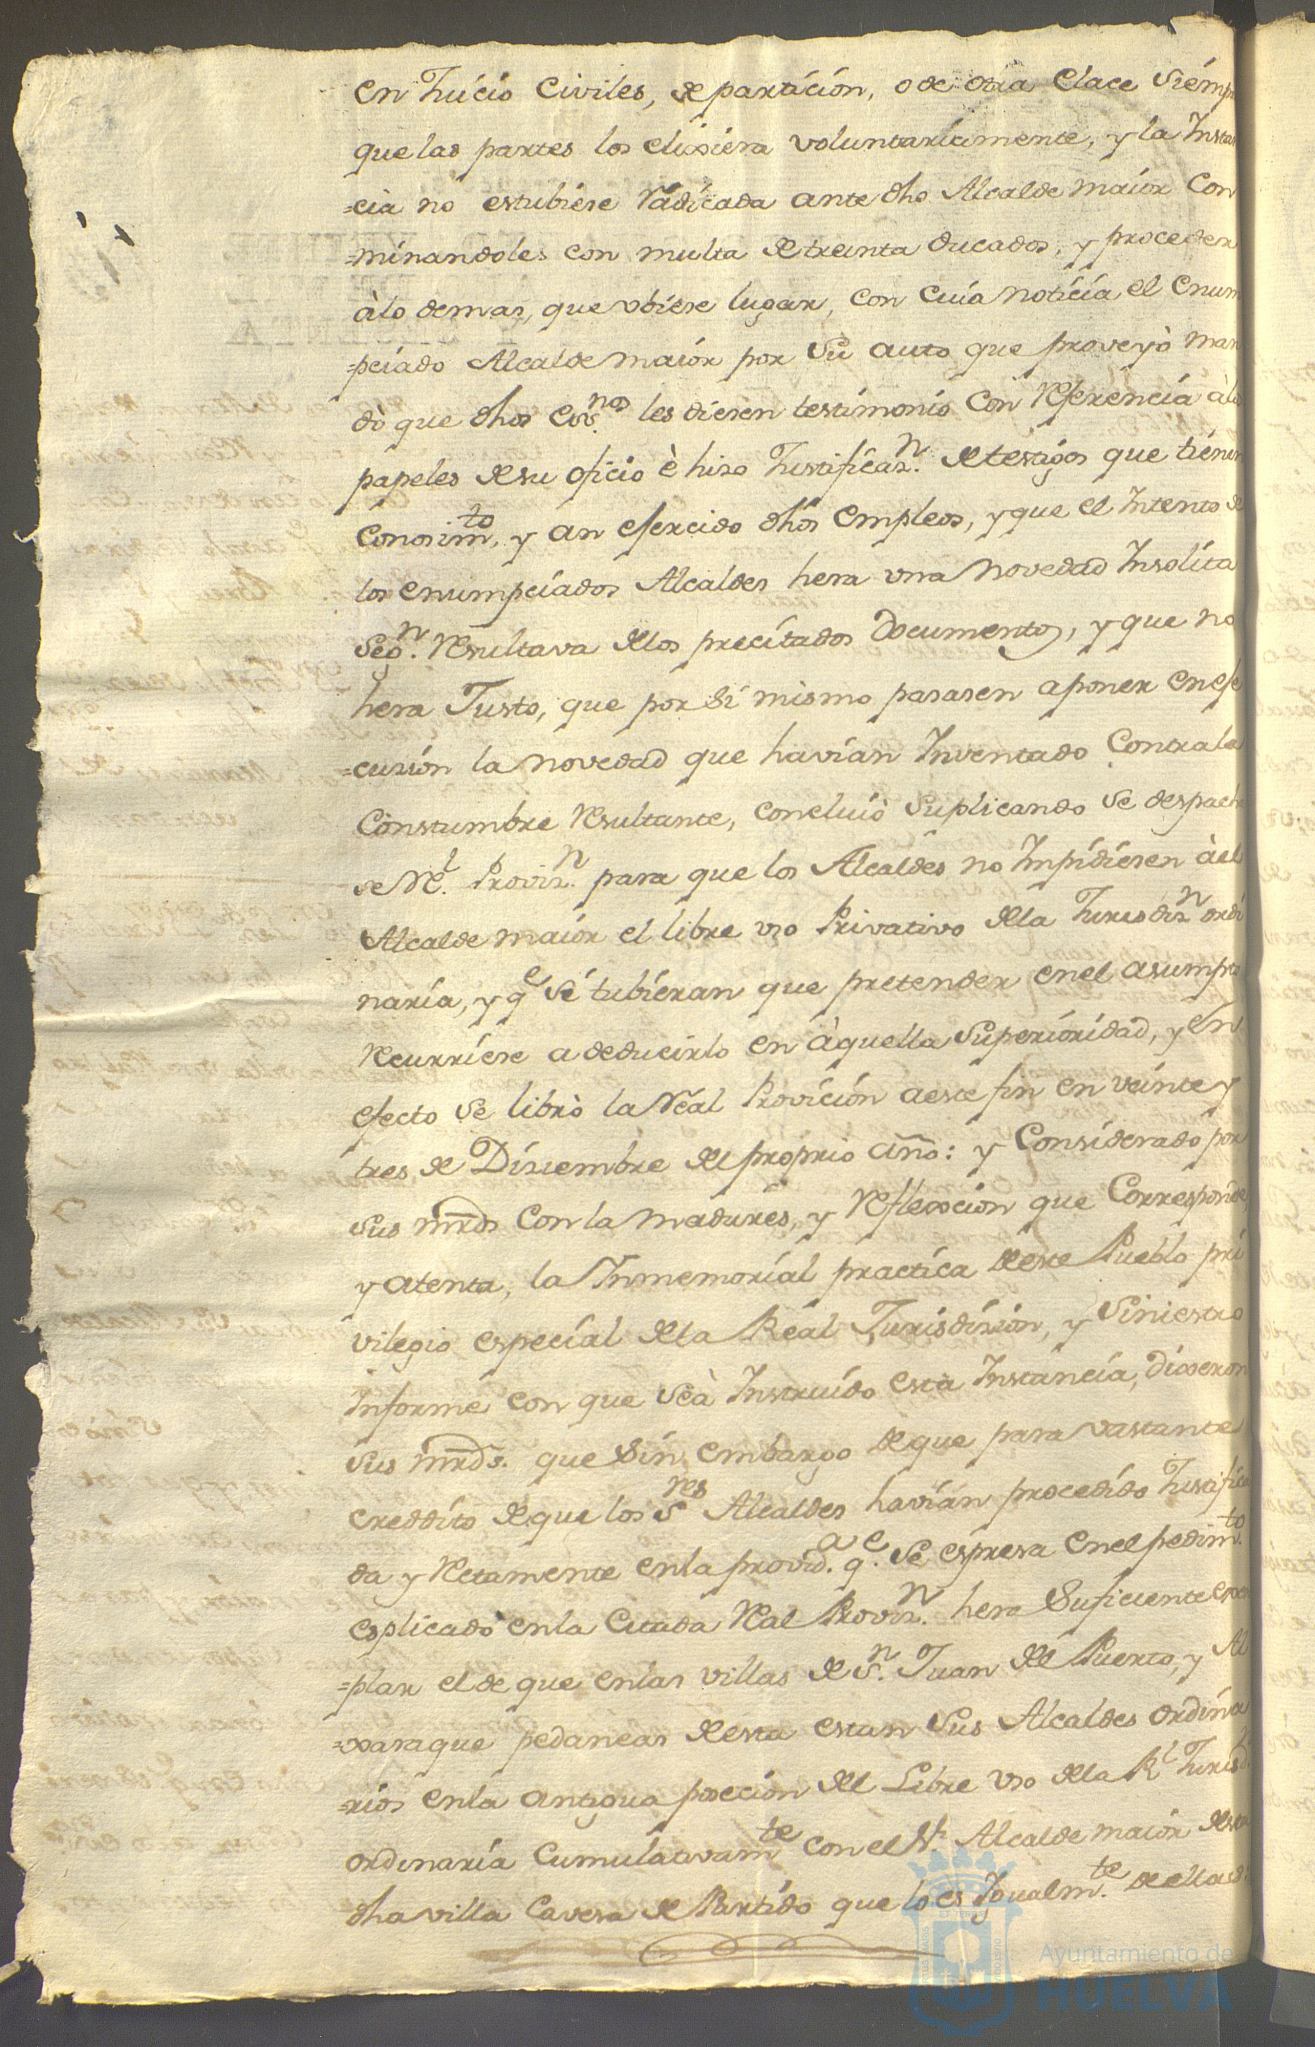 en Juicio Civiles, de particion, o de otra Clace Siemp
que las partes los elixiera voluntariamente, y la Instan
=cia no estubiere Radicada ante dho Alcalde maior Con
=minandoles con multa de treinta ducados, y proceder
àlo demas, que vbiere lugar, con cuia noticia el enum
=peiado Alcalde maior por Su auto que proveyò man
dò que dhos Essnos les diesen testimonio con Referencia àlo
papeles de su oficio è hizo Justificazn. de testigos que tienen
Conosimto, y an esercido dhos empleos, y que el Intento de
los enumpeiados Alcaldes hera vna novedad Insolita
Segn. Resultava de los precitados Documentos, y que no
hera Justo, que por Si mismo pasasen a poner en ese
=cusion la novedad que havian Inventado Contra la
Constumbre Resultante, concluiò Suplicando Se despach
se Rl. Provizn. para que los Alcaldes no Impidiesen àel
Alcalde maior el libre vso Privativo de la Jurisdizn ordi
naria, y qe Si tubieran que pretender en el asumpto
Recurriese a deducirlo en àquella Superioridad, y En
efecto Se librò la Real Provicion a este fin en veinte y
tres de Diziembre del proprio año: y Considerado por
Sus mrds Con la madures, y Reflexcion que Corresponde,
y atenta, la Inmemorial practica de este Pueblo pri
vilegio especial de la Real Jurisdision, y Siniestro
informe con que Seà Instruido esta Instancia, dixeron
Sus mrds. que Sin embargo de que para vastante
creddito de que los Sres Alcaldes havian procedido Justifica
da y Retamente en la provida. qe. Se espresa en el pedimto.
esplicado en la Citada Real Provizn. hera Suficiente exem
=plar el de que en las villas de Sn. Juan del Puerto, y Al
=xaraque pedaneas de esta estan Sus Alcaldes ordina
=rios en la antigua posecion del Libre vso de la Rl Jurisdi
ordinaria Cumulativamte con el Sr. Alcalde maior de esta
dha villa Cavesa de Partido que lo es Igualmte. de ellas
Ayuntamiento de
HUELVA